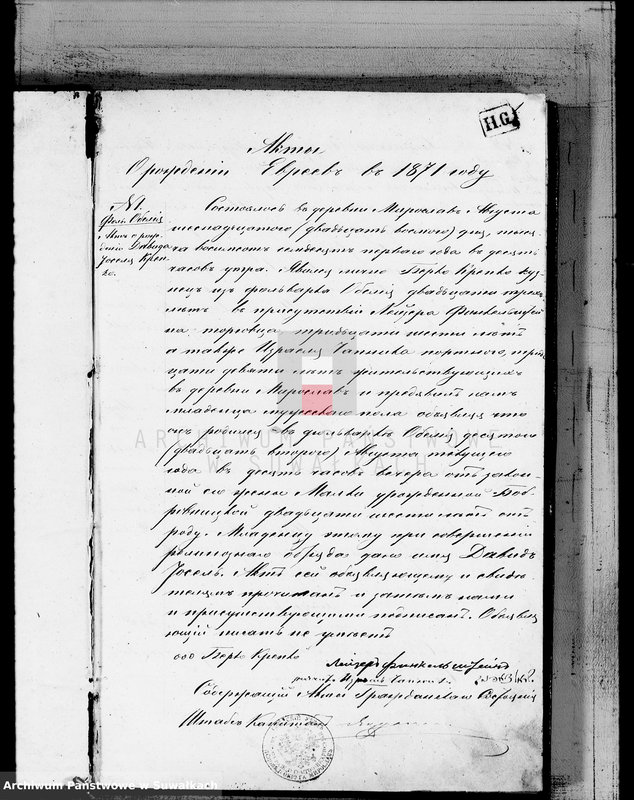 H.G.
Акты
О рождении Евреевъ въ 1871 году
№1.
Фоль. Обелія
Актъ о рож-
деніи Давида
Іоселя Крен-
ко.
Состоялось въ деревни Мирославъ Августа
шеснадцатого (двадцать восьмого) дня, тысяча
восемсотъ семьдесятъ перваго года въ десять
часовъ утра. Явился лично Берко Кренко куз-
нецъ изъ фольварка Обелія двадцати трехъ
летъ въ присутствіи Лейзера Финкельштей
на торговца тридцати шести летъ
а также Израеля портного,
цати девяти летъ жительствующихъ
въ деревни Мирославъ и предъявилъ намъ
младенца мужескаго пола объявляя что
онъ родился въ фольварке Обелія десятого
(двадцать второго) Августа текущего
года въ десять часовъ вечера отъ закон-
ной его жены Малки урожденной Боб-
ровницкой двадцати шести летъ отъ
роду. Младенцу этому при совершеніи
религіознаго обряда дано имя Давидъ
Іосель. Актъ сей объявляющему и свиде-
телямъ прочитанъ и затемъ нами
и присутствующими подписанъ. Объявля
ющій писать не умеетъ
ооо Берко Кренко
Лейзеръ Финкельштейнъ
Содержащій Акты Гражданскаго
Штабсъ Капитанъ
ARCHIWUM PAŃSTWOWE
W SUWAŁKACH
Archiwum Państwowe w Suwałkach